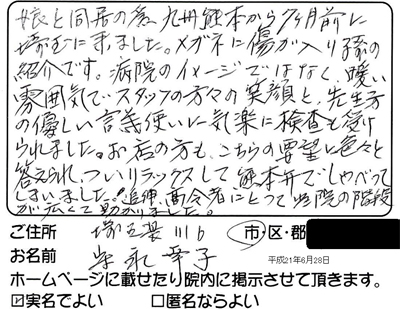 娘と同居の為九州熊本から7ヶ月前に
ました。メガネに傷が入り孫の
紹介です。病院のイメージではなく、暖い
雰囲気でスタッフの方々の笑顔と、先生方
の優しい言葉使いに気楽に検査も受け
られました。お店の方も、こちらの要望に色々と
答えられ、ついリラックスして熊本弁でしゃべって
しまいました。追伸、高令者にとって医院の階段
が広くて助かりました。
ご住所 市・区・郡
お名前 幸子 平成21年6月28日
ホームページに載せたり院内に掲示させて頂きます。
☑実名でよい □匿名ならよい